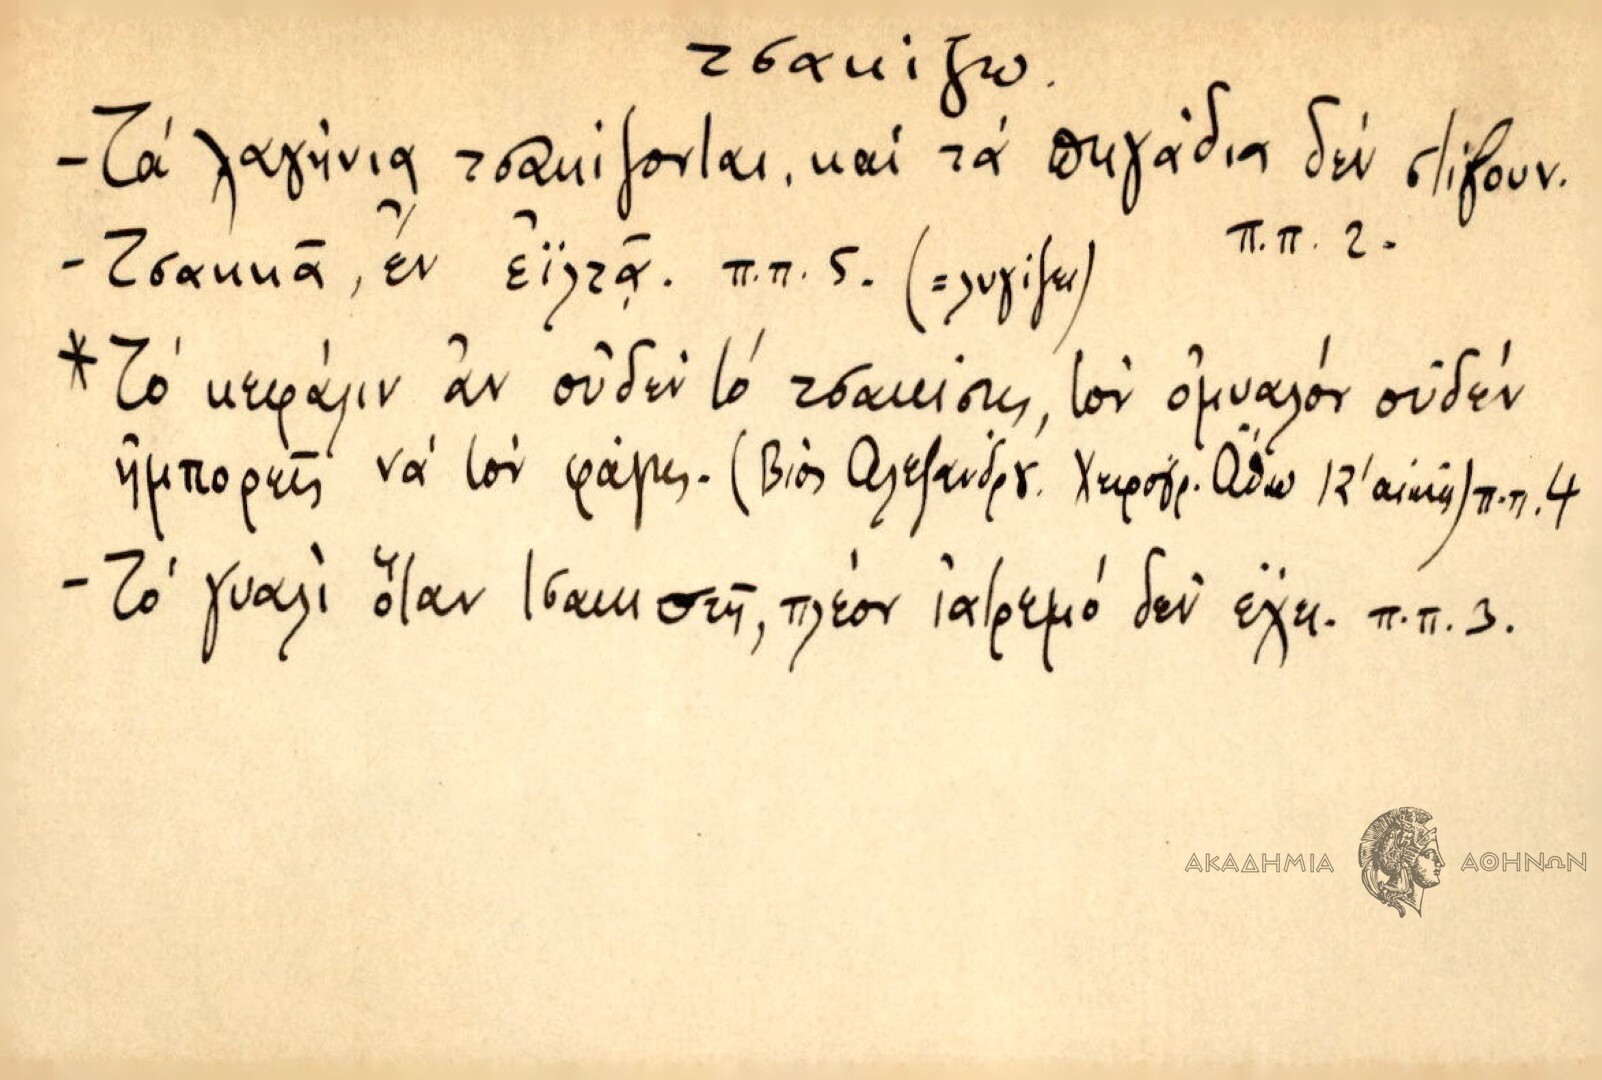 τσακίζω.
- Τά λαγήνια τσακίζονται, καί τά πηγάδια δέν στίβουν.
π.π. 2.
- Τσακκᾶ, ἒν εἰϊλτᾷ. π.π. 5. (=λυγίζει)
* Τό κεφάλιν ἂν οὐδέν τό τσακίσῃς, τόν ὀμυαλόν οὐδέν
ἠμπορεῖς νά τόν φάγῃς. (Βίος Ἀλεξάνδρου. Χειρόγρ. Ἄθω 12' αἰών) π.π. 4
- Τό γυαλί ὅταν τσακιστῇ, πλέον ἰατρεμό δέν ἔχει. π.π. 3.
ΑΚΑΔΗΜΙΑ ΑΘΗΝΩΝ